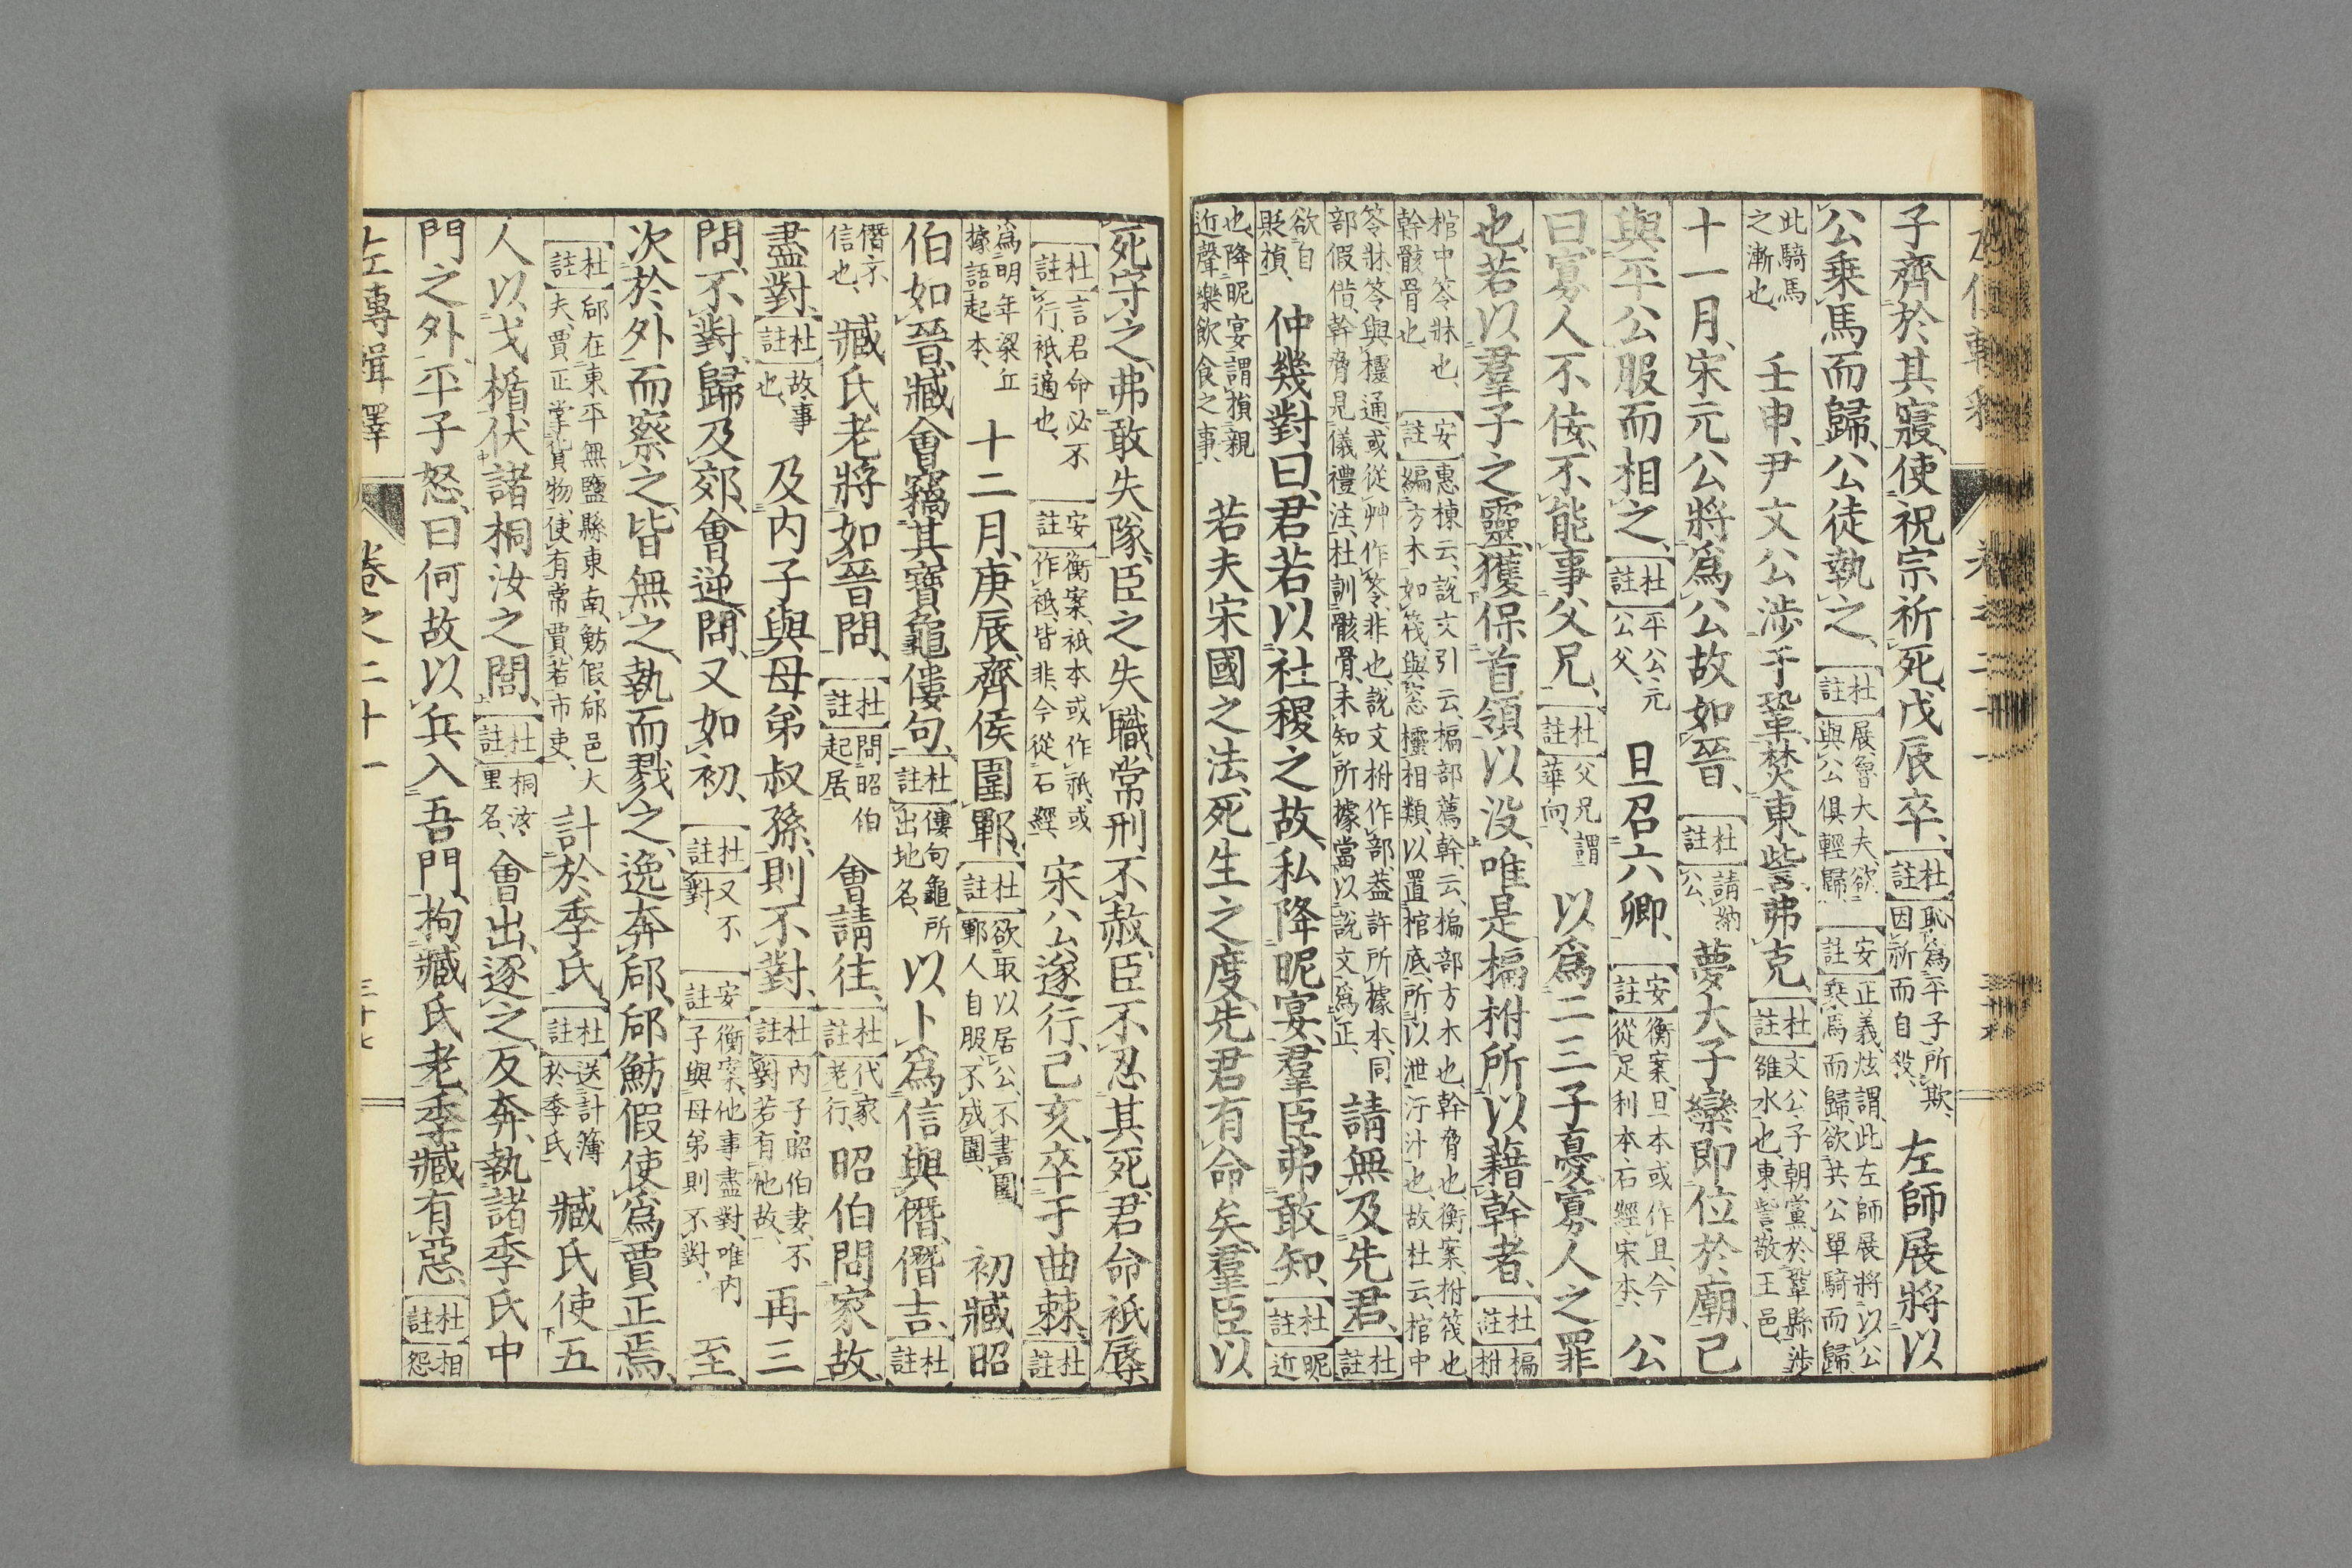 子齊於其寢、使祝宗祈死、戊辰卒、【杜註】恥爲平子所欺、因祈而自殺、左師展將以
公乗馬而歸、公徒執之、【杜註】展、魯大夫、欲與公俱輕歸、【安註】正義、炫謂、此左師展將以公乘馬而歸、欲共公單騎而歸、
此騎馬之漸也、壬申、尹文公涉于鞏、焚東訾、弗克、【杜註】文公、子朝黨、於鞏縣涉雒水也、東訾、敬王邑、
十一月、宋元公將爲公故如晉、【杜註】請納公、夢大子欒卽位於廟、己
與平公服而相之、【杜註】平公、元公父、旦召六卿、【安註】衡案、旦本或作且、今從足利本石經宋本、公
曰、寡人不佞、不能事父兄、【杜註】父兄、謂華向、以爲二三子憂、寡人之罪
也、若以羣子之靈、獲保首領以沒、唯是楄柎所以藉幹者、【杜註】楄柎、
棺中笭牀也、幹、骸骨也、【安註】惠棟云、說文引云、楄部薦幹、云、楄部方木也、幹脅也、衡案、柎筏也、編方木如筏、與窓櫺相類、以置棺底、所以泄汙汁也、故杜云、棺中
笭牀、笭與櫺通、或從艸作苓、非也、說文柎作部、葢許所據本、同部假借、幹脅見儀禮注、杜訓骸骨、未知所據、當以說文爲正、請無及先君、【杜註】
欲自貶損、仲幾對曰、君若以社稷之故、私降昵宴、羣臣弗敢知、【杜註】昵、近
也、降昵宴、謂損親近聲樂飲食之事、若夫宋國之法、死生之度、先君有命矣、羣臣以
死守之、弗敢失隊、臣之失職、常刑不赦、臣不忍其死、君命祇辱、
【杜註】言君命必不行、祇、適也、【安註】衡案、祇本或作祗、或作秪、皆非、今從石經、宋公遂行、己亥、卒于曲棘、【杜註】
爲明年梁丘據語起本、十二月、庚辰、齊侯圍鄆、【杜註】欲取以居公、不書圍、鄆人自服、不成圍、初臧昭
伯如晉、臧會竊其寶龜僂句、【杜註】僂句、龜所出地名、以卜爲信與僭、僭吉、【杜註】
僭、不信也、臧氏老將如晉問、【杜註】問昭伯起居、會請往、【杜註】代家老行、昭伯問家故、
盡對、【杜註】故、事也、及內子與母弟叔孫、則不對、【杜註】內子、昭伯妻、不對若有他故、再三
問、不對、歸及郊、會逆、問、又如初、【杜註】又不對、【安註】衡案、他事盡對、唯內子與母弟則不對、至
次於外而察之、皆無之、執而戮之、逸奔郈、郈魴假使爲賈正焉、
【杜註】郈在東平無鹽縣東南、魴假、郈邑大夫、賈正、掌貨物、使有常賈、若市吏、計於季氏、【杜註】送計簿於季氏、臧氏使五
人以戈楯伏諸桐汝之閭、【杜註】桐汝、里名、會出、逐之、反奔、執諸季氏中
門之外、平子怒、曰、何故以兵入吾門、拘臧氏老、季臧有惡、【杜註】相怨
左傳輯釋　卷之二十一　三十七